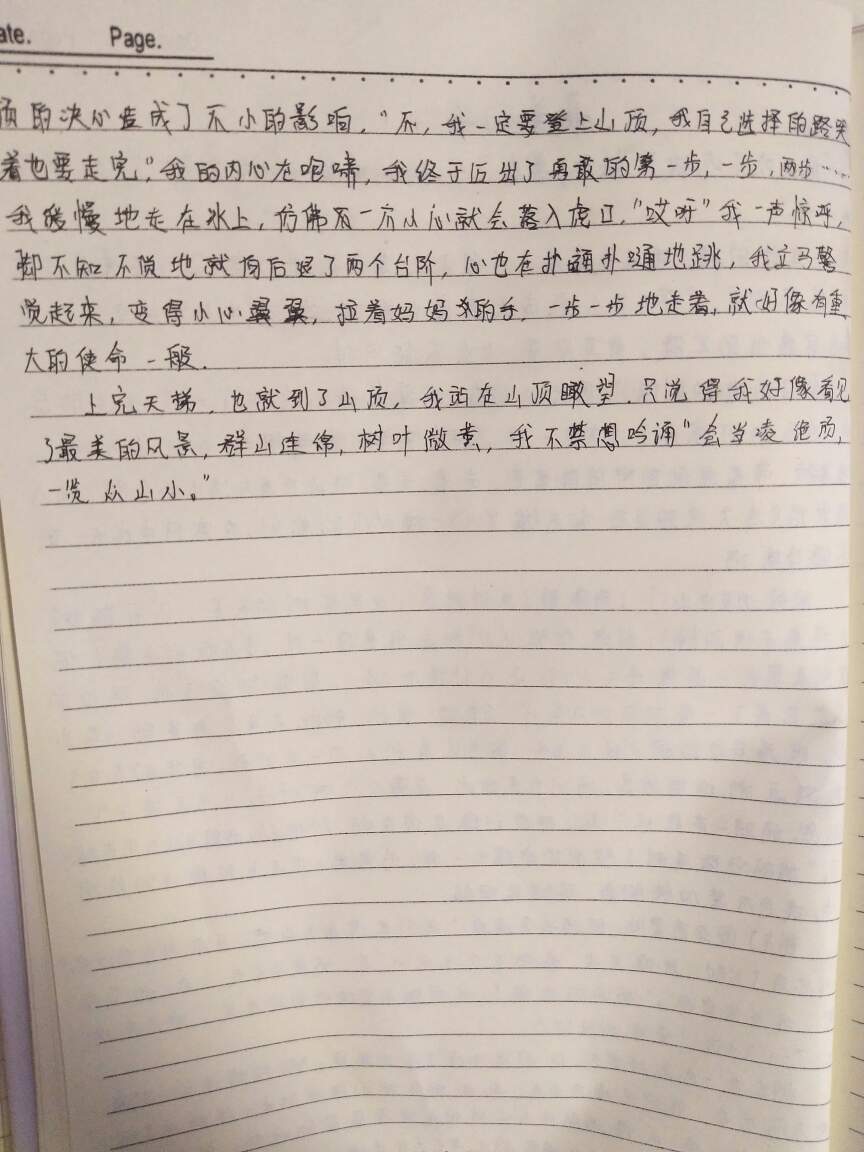 ate. Page.
顶的决心造成了不小的影响，“不，我一定要登上山顶，我自己选择的路哭
着也要走完。”我的内心在咆哮，我终于迈出了勇敢的第一步，一步，两步……
我缓慢地走在冰上，仿佛不一小心就会落入虎口，“哎呀”我一声惊呼，
脚不知不觉地就向后退了两个台阶，心也在扑通扑嗵地跳，我立马警
觉起来，变得小心翼翼，拉着妈妈的手，一步一步地走着，就好像有重
大的使命一般.
上完天梯，也就到了山顶，我站在山顶瞰望，只觉得我好像看见
了最美的风景，群山连绵，树叶微黄，我不禁想吟诵“会当凌绝顶，
一览众山小。”